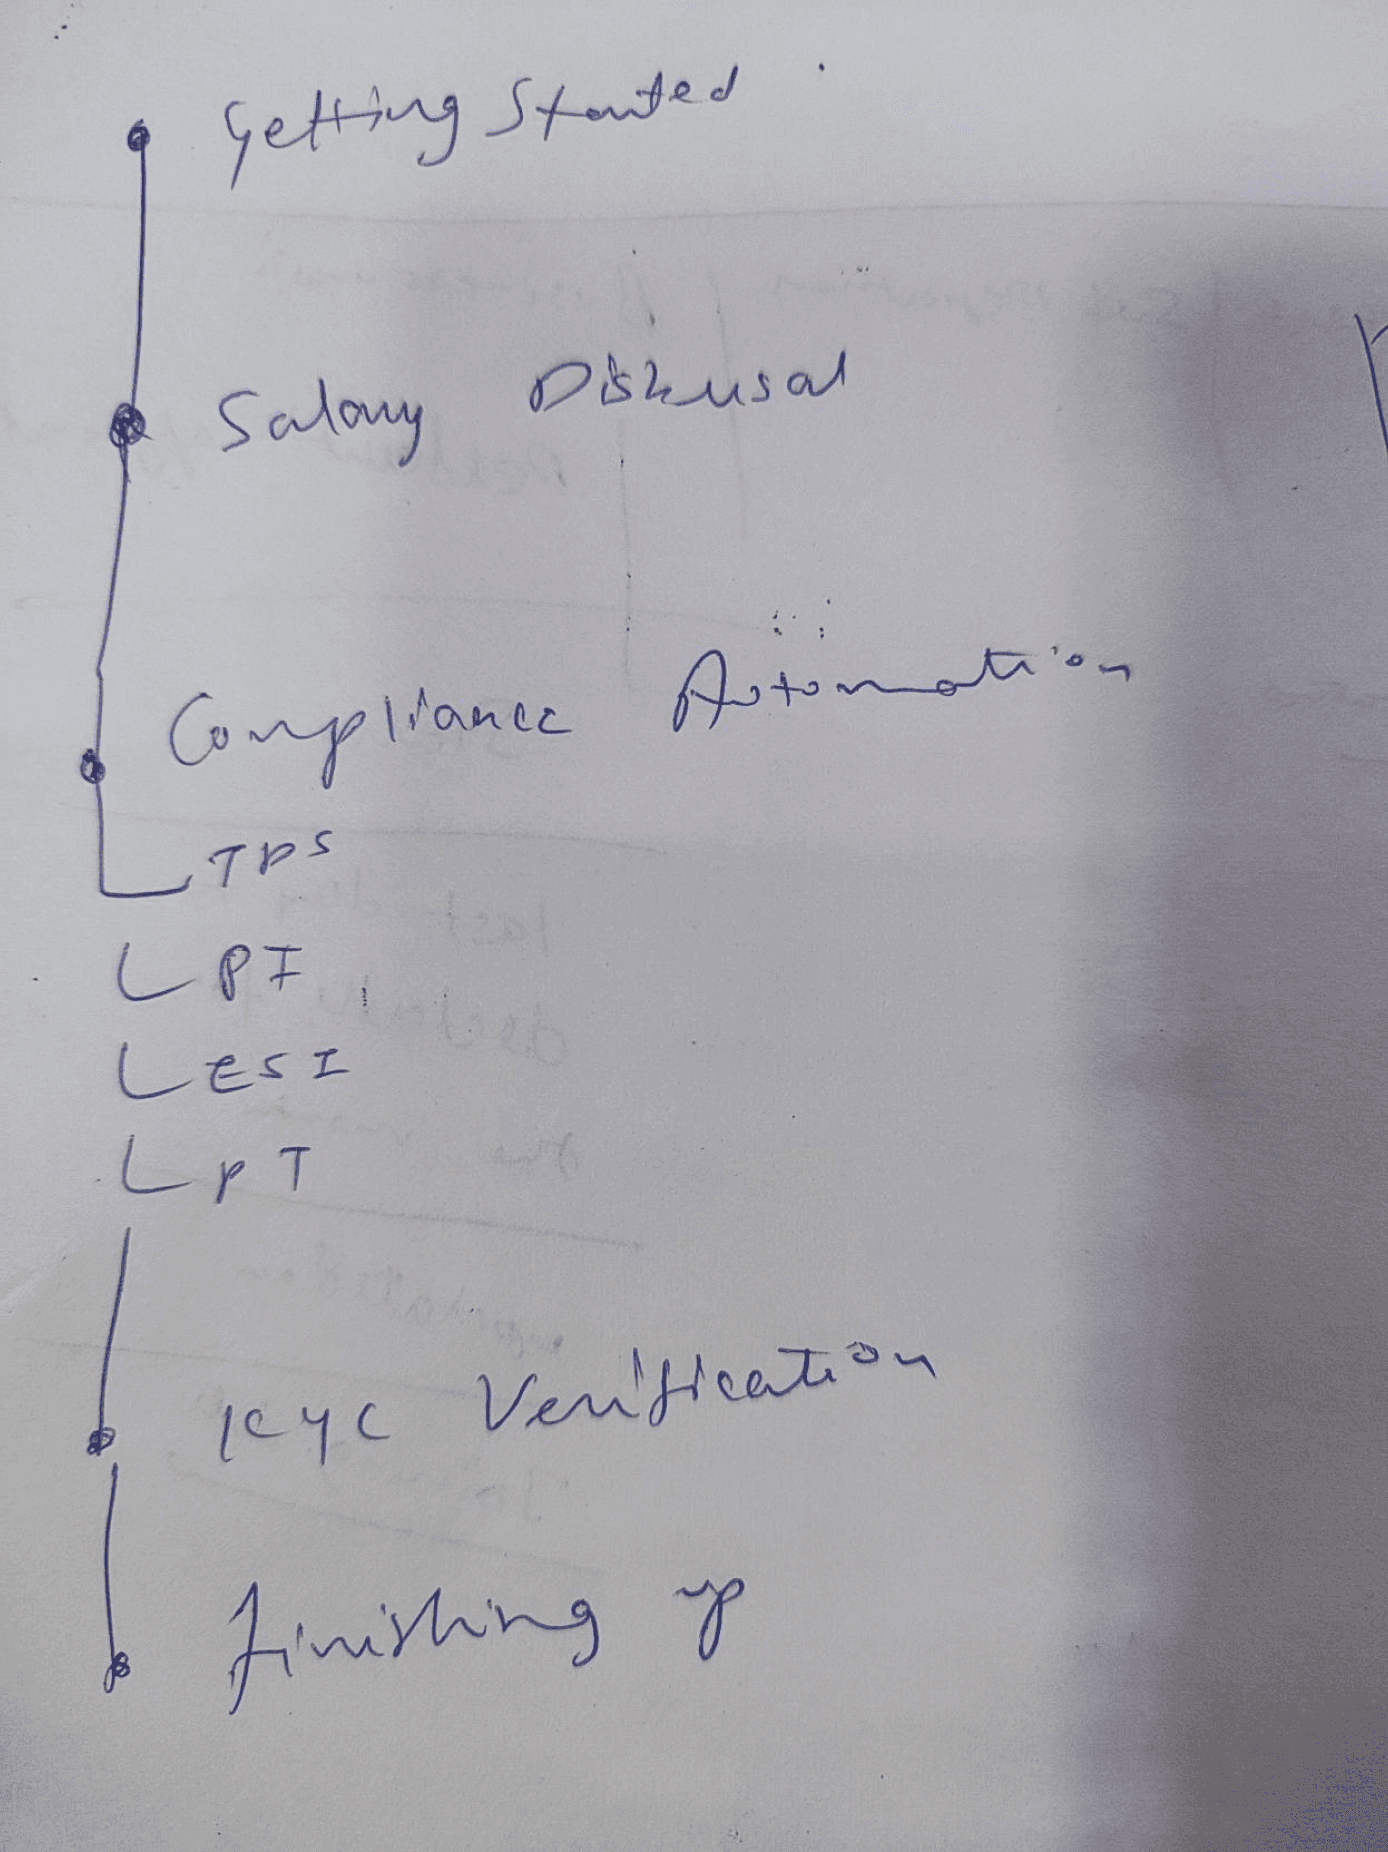 Getting Started
Salary Diskusal
Compliance Automation
TDS
PI
ESI
PT
KYC Verification
Finishing up